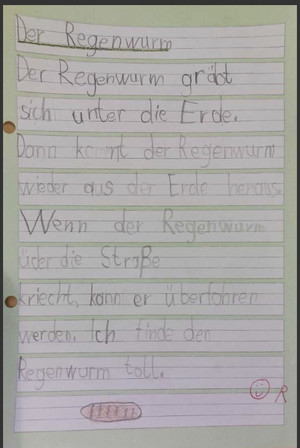 Der Regenwurm
Der Regenwurm gräbt
sich unter die Erde.
Dann kommt der Regenwurm
wieder aus der Erde heraus.
Wenn der Regenwurm
über die Straße
kriecht, kann er überfahren
werden. Ich finde den
Regenwurm toll.
R